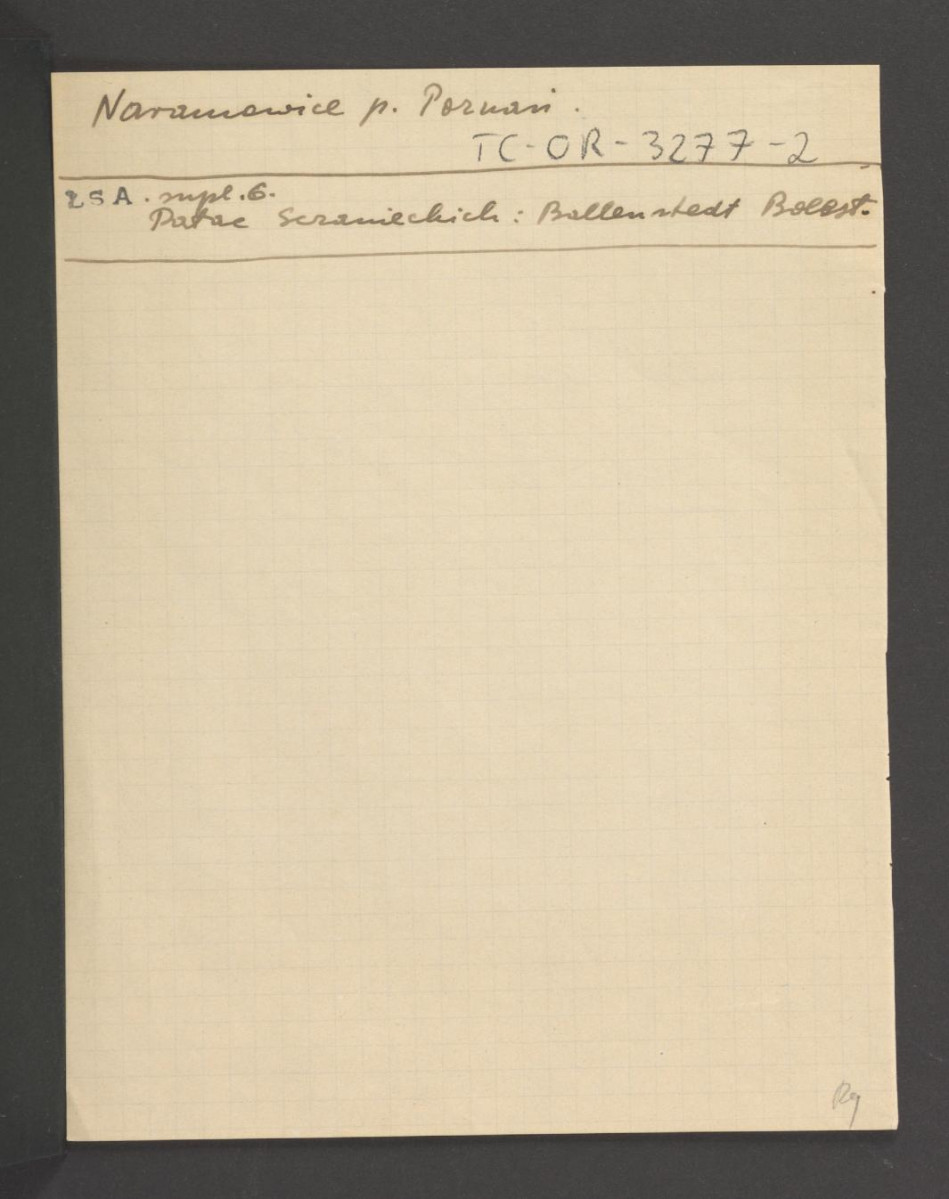 Naramowice p. Poznań.
TC-OR-3277-2
ŁSA. supl. 6.
Pałac Sczanieckich: Ballenstedt Bolest.
Rg